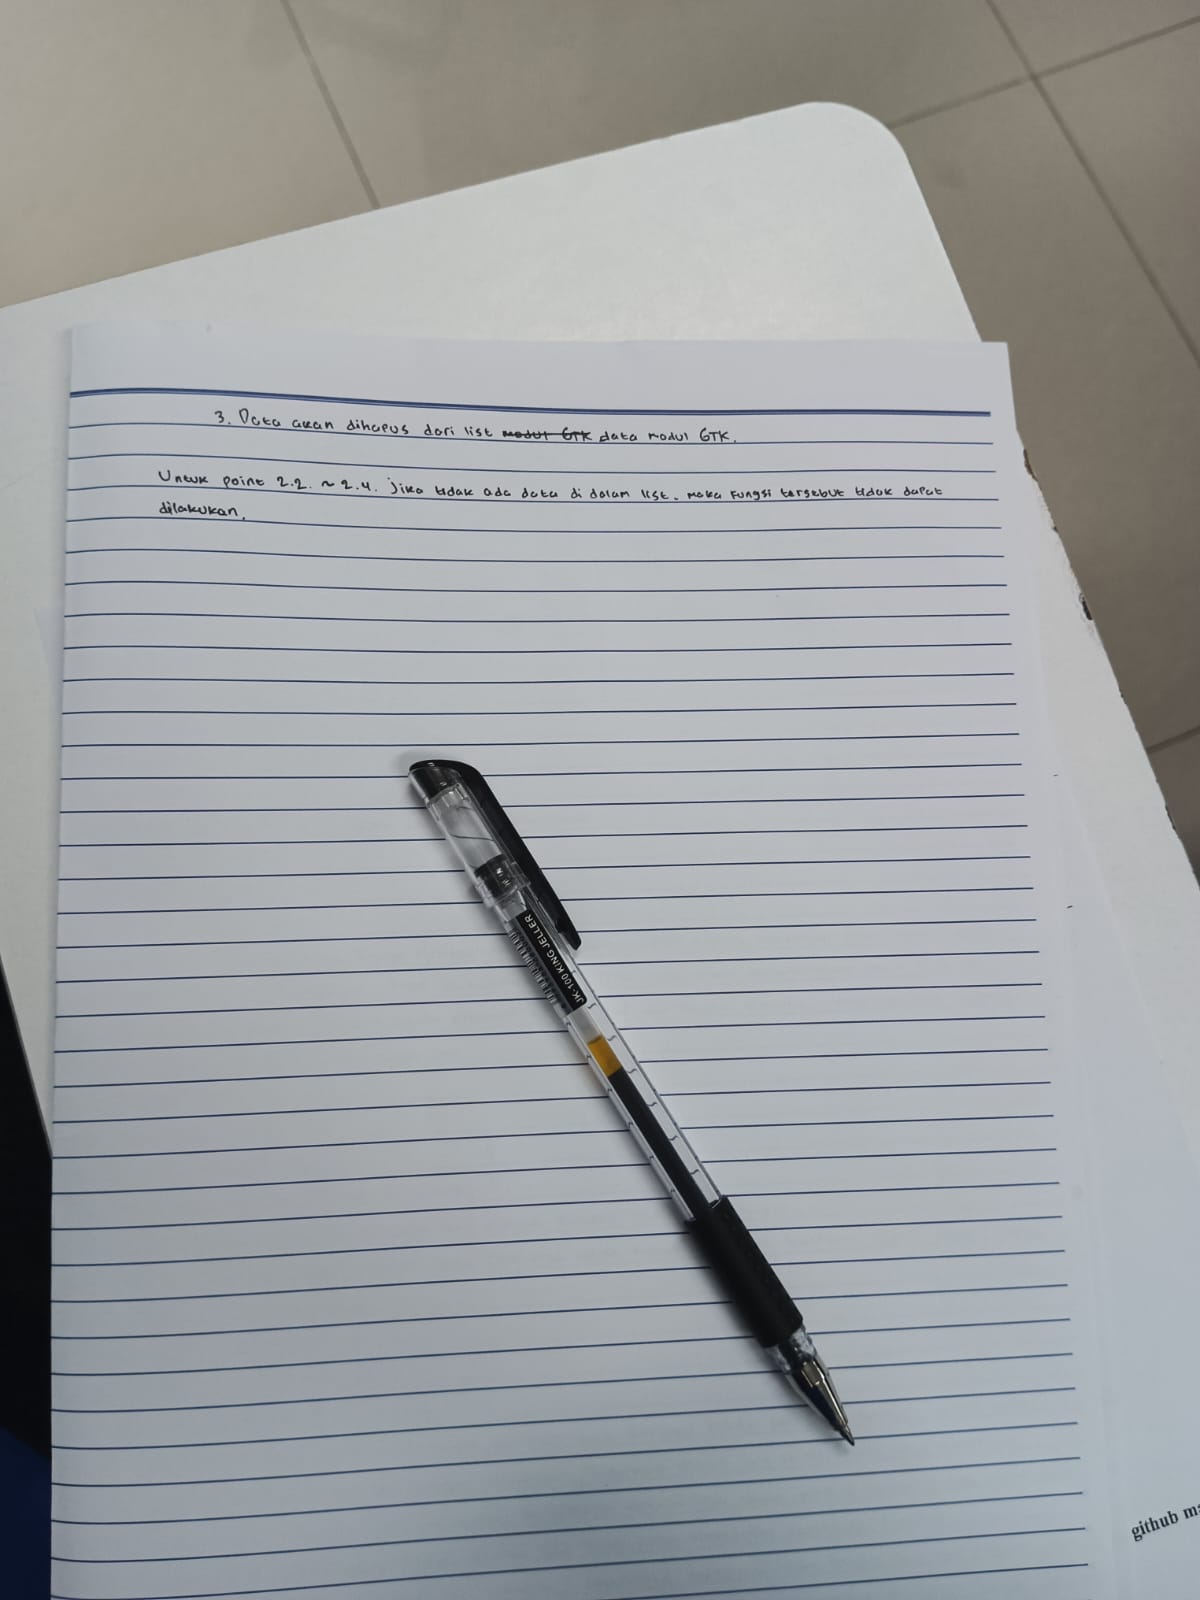 3. Data akan dihapus dari list modul GTK data modul GTK.
Untuk point 2.2. ~ 2.4. Jika tidak ada data di dalam list. maka fungsi tersebut tidak dapat
dilakukan.
JK-100 KING JELLER
github